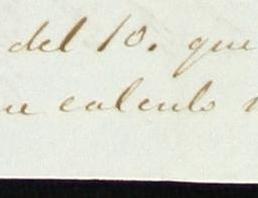 del 10. que
calculo